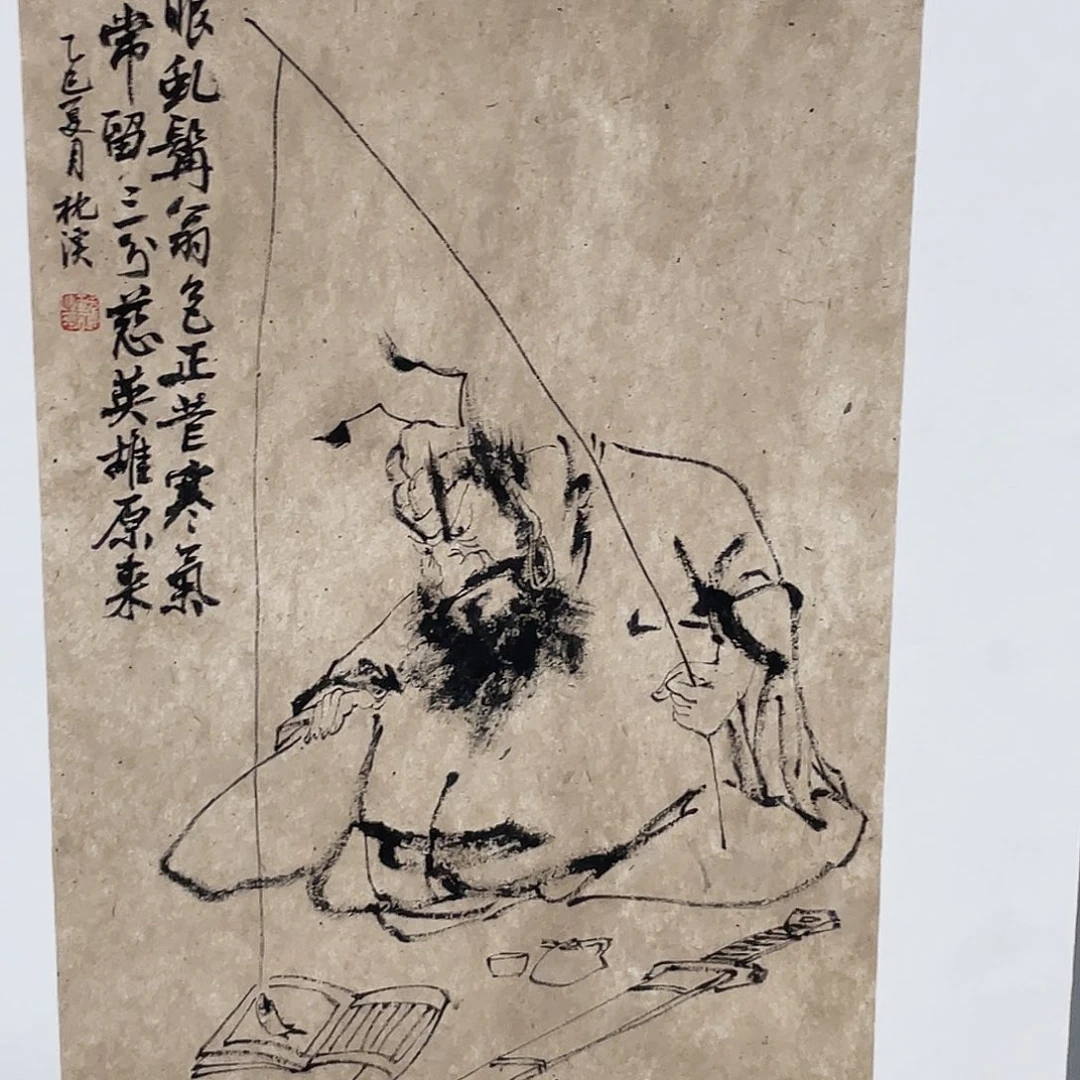 眼虬髯翁色正芒寒氣
常留三分慈英雄原来
乙巳夏月 枕溪